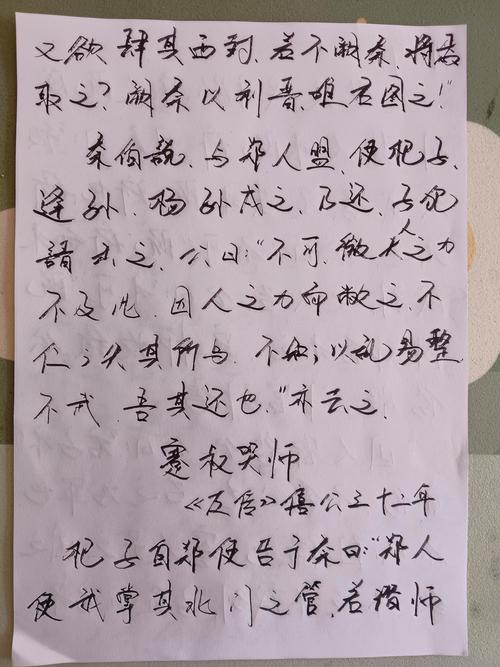 又欲肆其西封、若不阙秦、将焉
取之？阙秦以利晋、唯君图之！"
秦伯说、与郑人盟、使杞子、
逢孙、杨孙戍之、乃还、子犯
請击之、公曰："不可、微夫人之力
不及此、因人之力而敝之、不
仁；失其所与、不知；以乱易整
不武、吾其还也"亦去之、
蹇叔哭师
《左传》僖公三十二年
杞子自郑使告于秦曰："郑人
使我掌其北门之管、若潜师